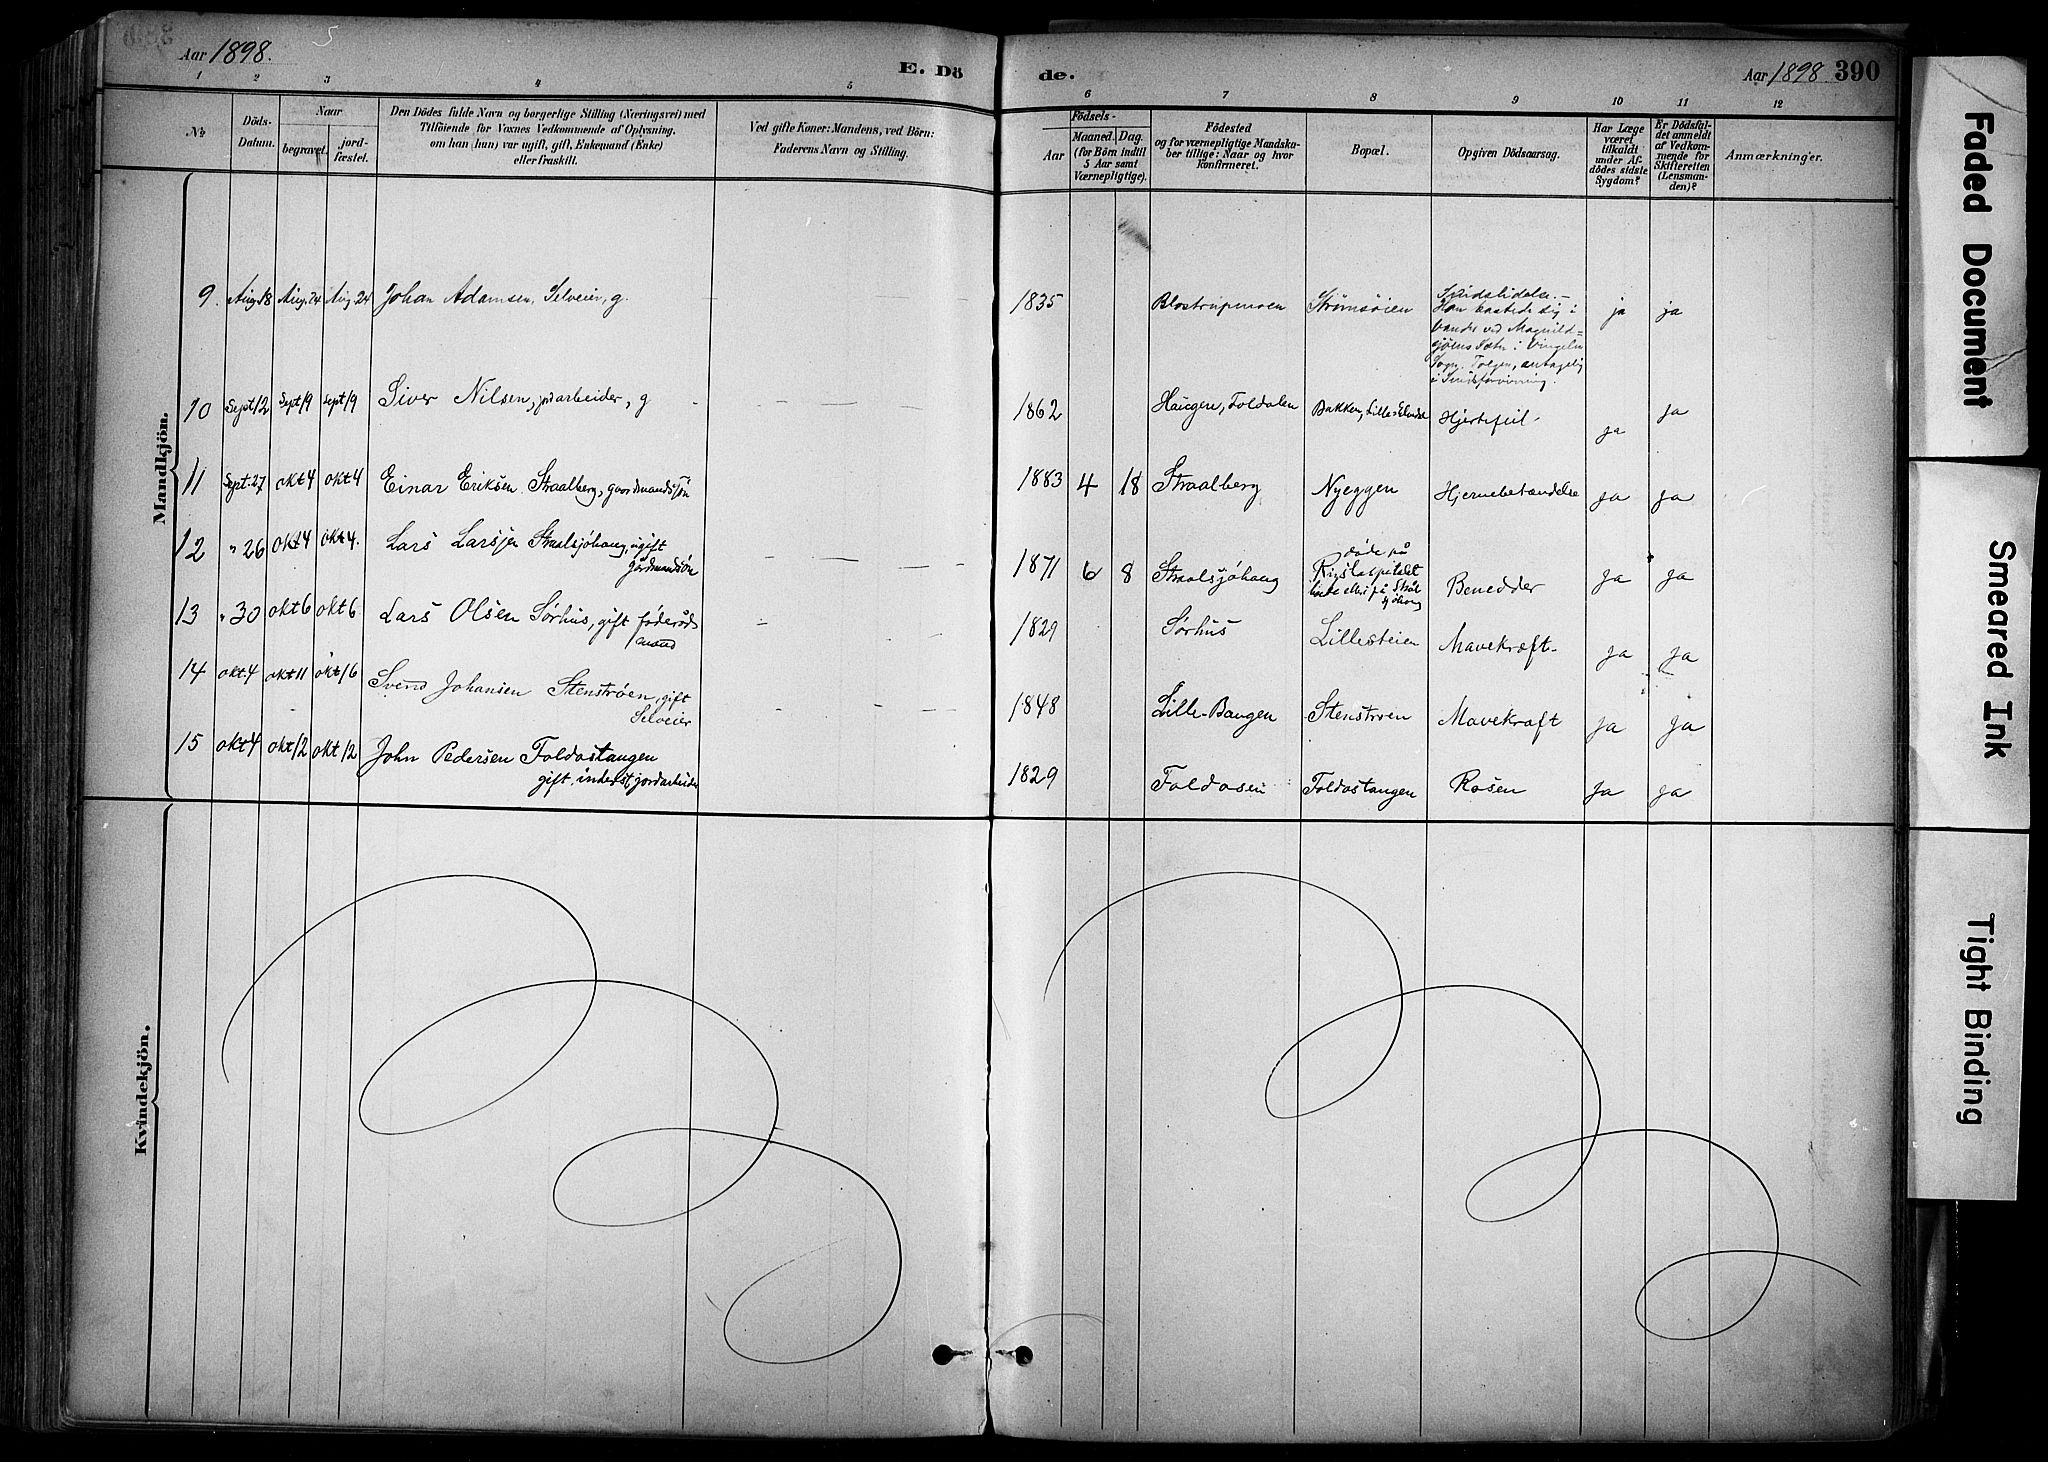 Aar 1898.
E. Dö
de.
Aar 1898 390
1 2 3 4 5
6 7 8 9 10 11 12
No
Döds-
Datum.
Naar
begravet.
jord-
fæstet.
Den Dödes fulde Navn og borgerlige Stilling (Næringsvei) med
Tilföiende for Voxnes Vedkommende af Oplysning,
om han (hun) var ugift, gift, Enkemand (Enke)
eller fraskilt.
Ved gifte Koner: Mandens, ved Börn:
Faderens Navn og Stilling.
Födsels-
Aar
Maaned. Dag.
(for Börn indtil
5 Aar samt
Værnepligtige).
Födested
og for værnepligtige Mandska-
ber tillige: Naar og hvor
konfirmeret.
Bopæl.
Opgiven Dödsaarsag.
Har Læge
været
tilkaldt
under Af-
dödes sidste
Sygdom?
Er Dödsfal-
det anmeldt
af Vedkom-
mende for
Skifteretten
(Lensman-
den)?
Anmærkninger.
Mandkjön.
9. Aug. 18 Aug. 24 Aug 24 Johan Adamsen, Selveier, g.
1835 Blostrupmoen Strömsöien
Sindslidelse.-
Han kastede sig i
Vandet ved Magnild=
sjöens Sæter i Vingelen
Sogn, Tolgen, antagelig
i Sindsforvirring.
ja ja
10 Sept 12 Sept 19 sept 19 Siver Nilsen, jordarbeider, g
1862 Haugen, Foldalen Bakken, Lille-Elvdal Hjertefeil. ja ja
11 Sept. 27 okt 4 okt 4 Einar Eriksen Straalberg, gaardmandssön
1883 4 18 Straalberg Nyeggen Hjernebetændelse ja ja
12 " 26 okt 4 okt 4. Lars Larssen Straalsjöhaug, ugift
gårdmandsön
1871 6 8 Straalsjöhaug
döde på
Rigshospitalet
boede ellers på Strål
sjöhaug
Benedder ja ja
13 " 30 okt 6 okt 6 Lars Olsen Sörhus, gift föderåds
mand
1829 Sörhus Lillesteien Mavekræft. ja ja
14 okt. 4 okt 11 okt 16 Svend Johansen Stenströen, gift
Selveier
1848 Lille-Bangen Stenströen Mavekræft ja ja
15 okt 4 okt 12 okt 12 John Pedersen Foldostangen
gift, inderst, jordarbeider
1829 Foldosen Foldostangen Rosen ja ja
Kvindekjön.
Faded Document
Smeared Ink
Tight Binding